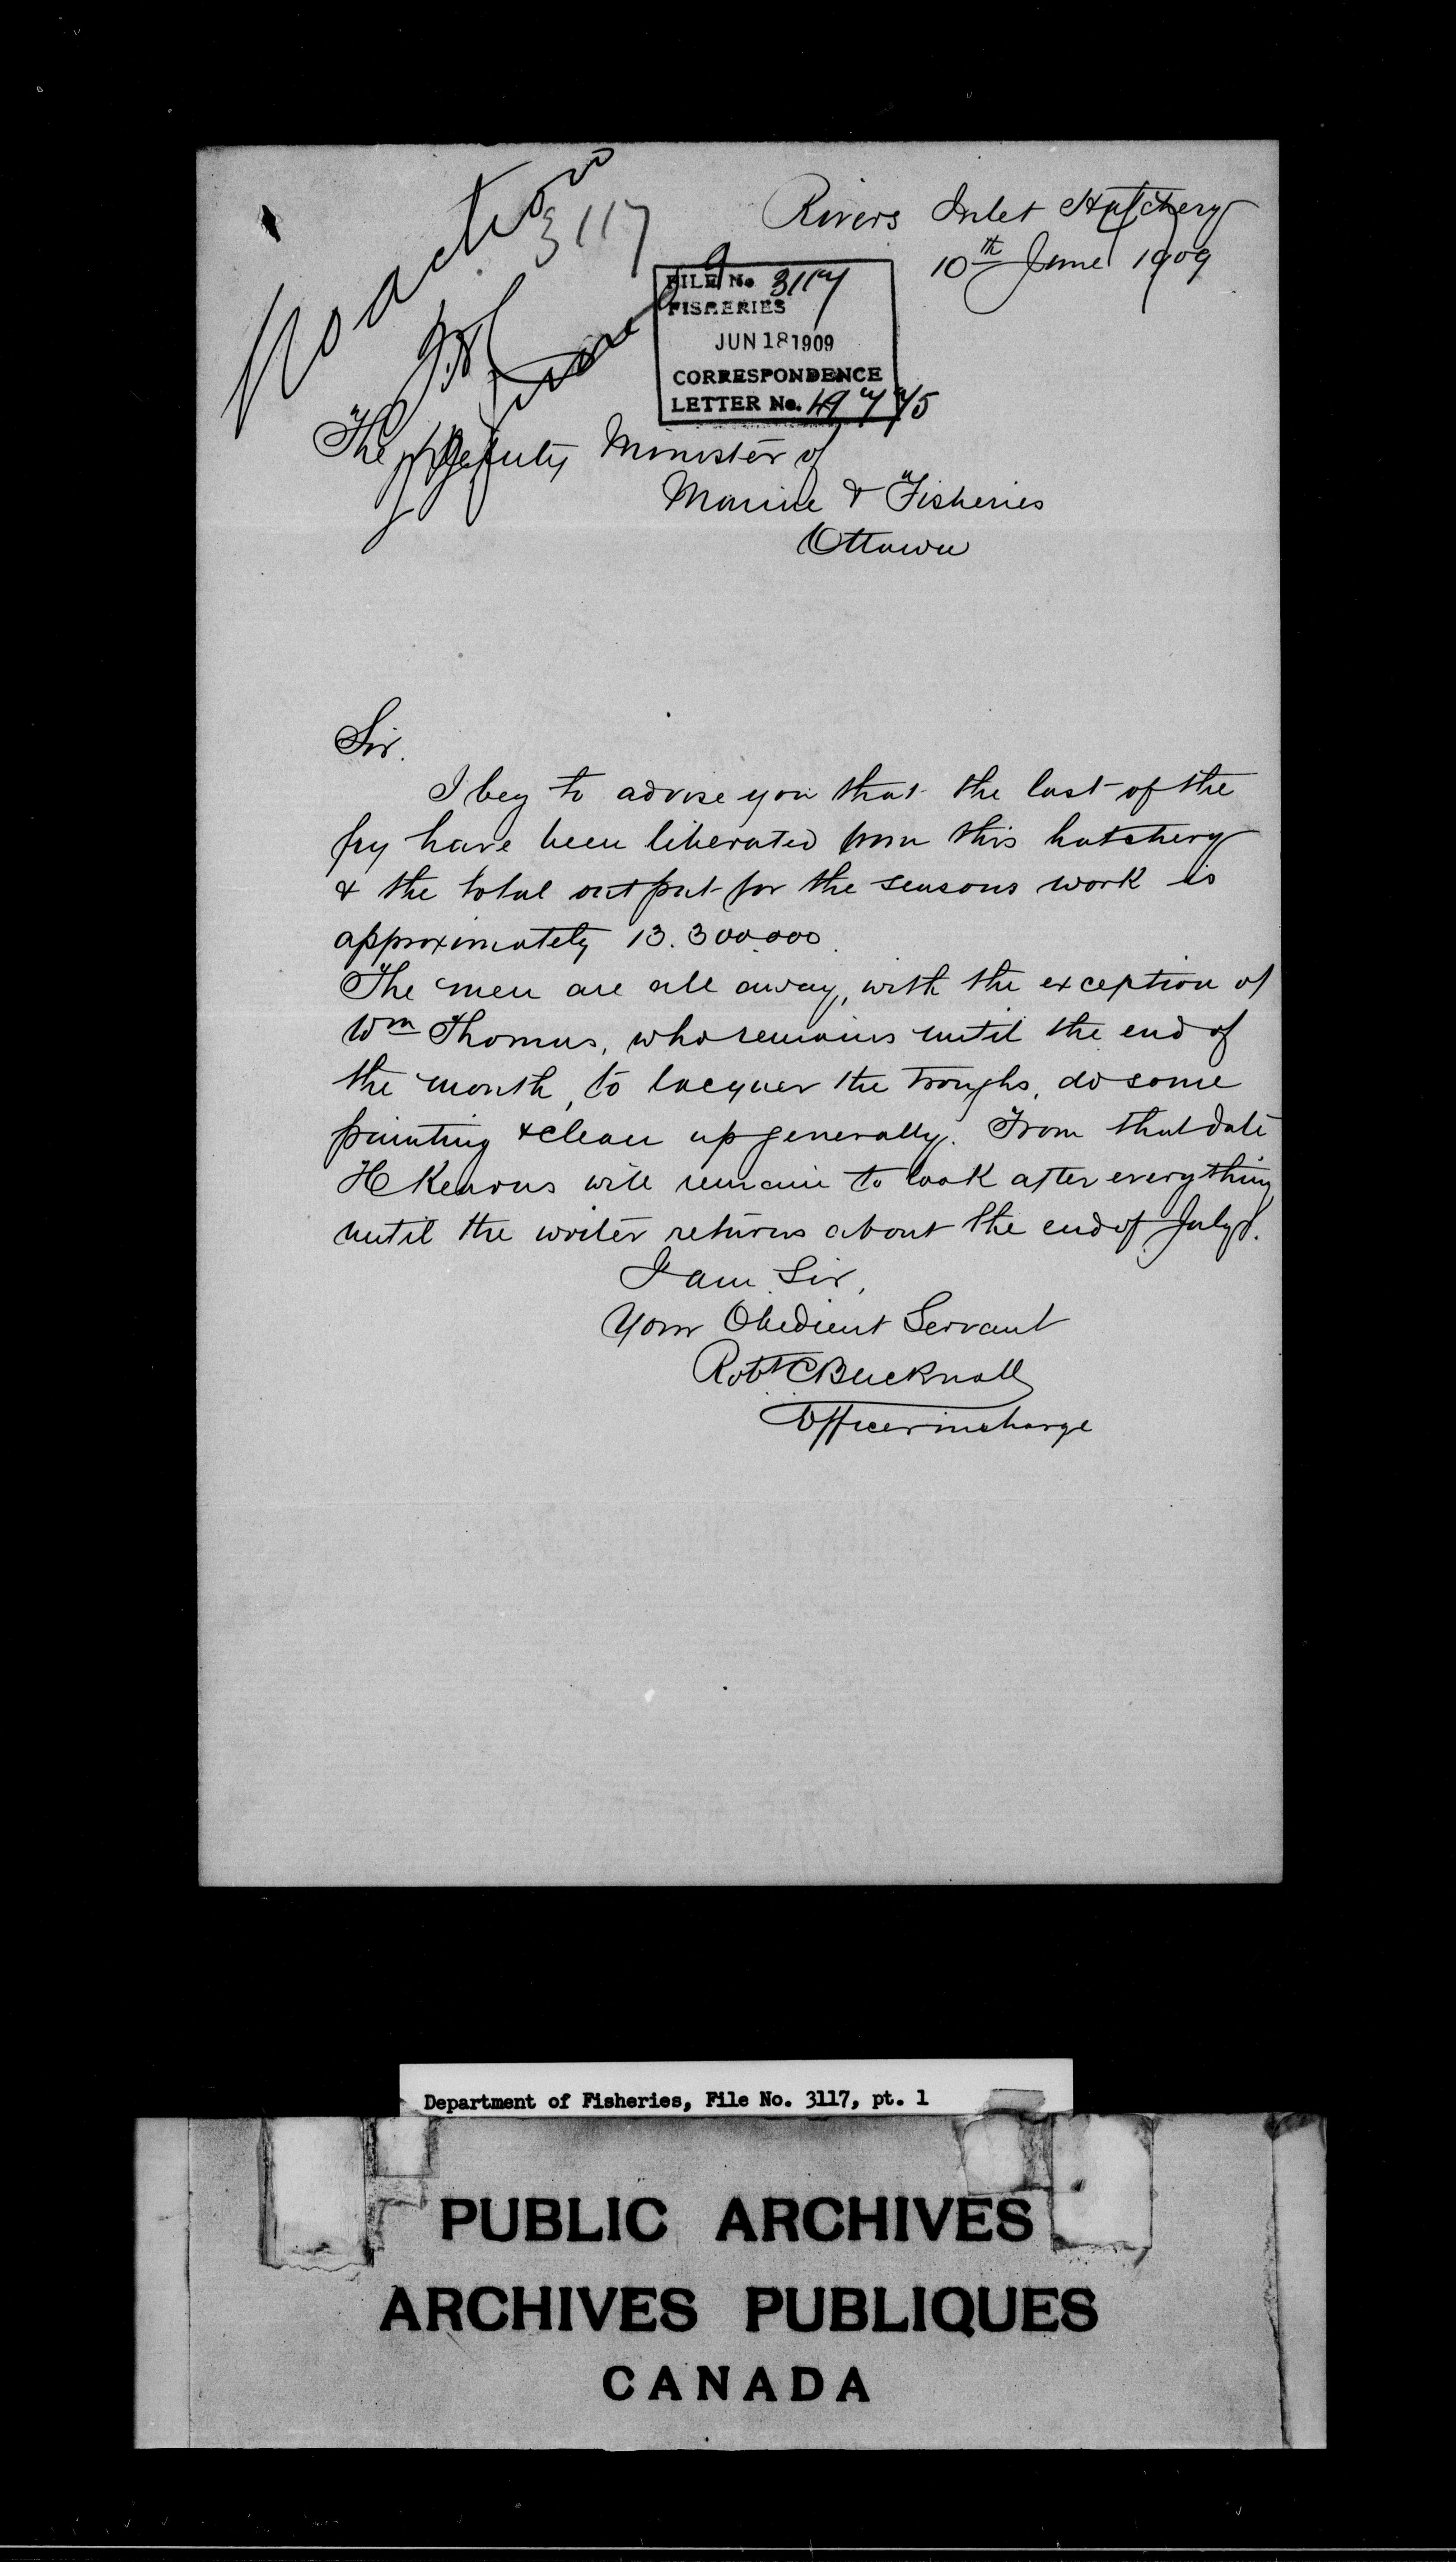 No action
3117
Rivers Inlet Hatchery
10th June 1909
FILE No. 3117
FISHERIES
JUN 18 1909
CORRESPONDENCE
LETTER No.
The Deputy Minister of
Marine & Fisheries
Ottawa
Sir.
I beg to advise you that the last of the
fry have been liberated from this hatchery
& the total output for the seasons work is
approximately 13.300.000.
The men are all away, with the exception of
Wm Thomas, who remains until the end of
the month, to lacquer the troughs, do some
painting & clean up generally. From that date
H will remain to look after everything
until the writer returns about the end of July.
I am Sir,
Your Obedient Servant
Robt C Bucknall
Officer in charge
Department of Fisheries, File No. 3117, pt. 1
PUBLIC ARCHIVES
ARCHIVES PUBLIQUES
CANADA